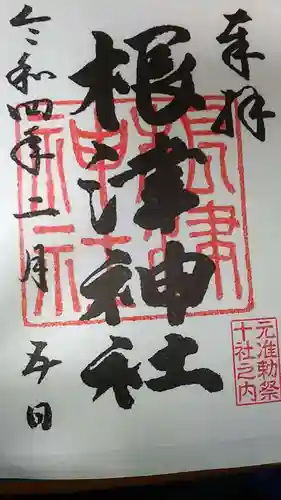 奉拝
根津神社
根津
神社
元准勅祭
十社之内
令和四年二月五日